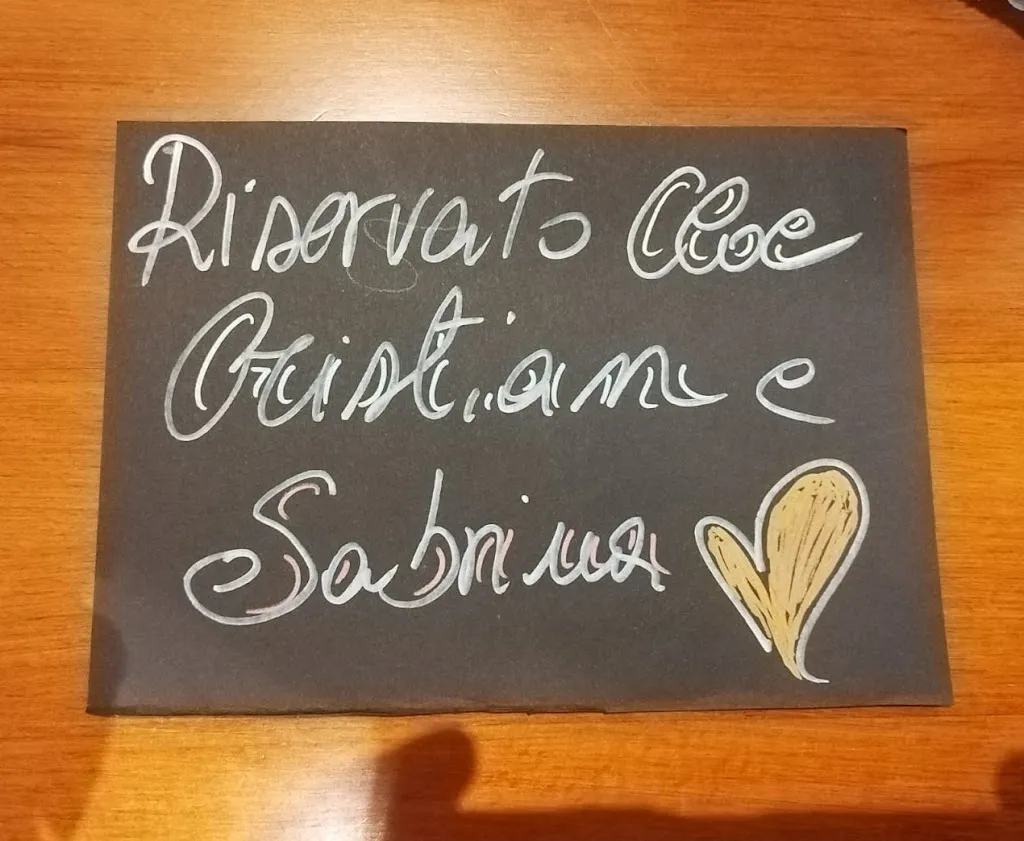 Riservato Cloe
Cristian e
Sabrina